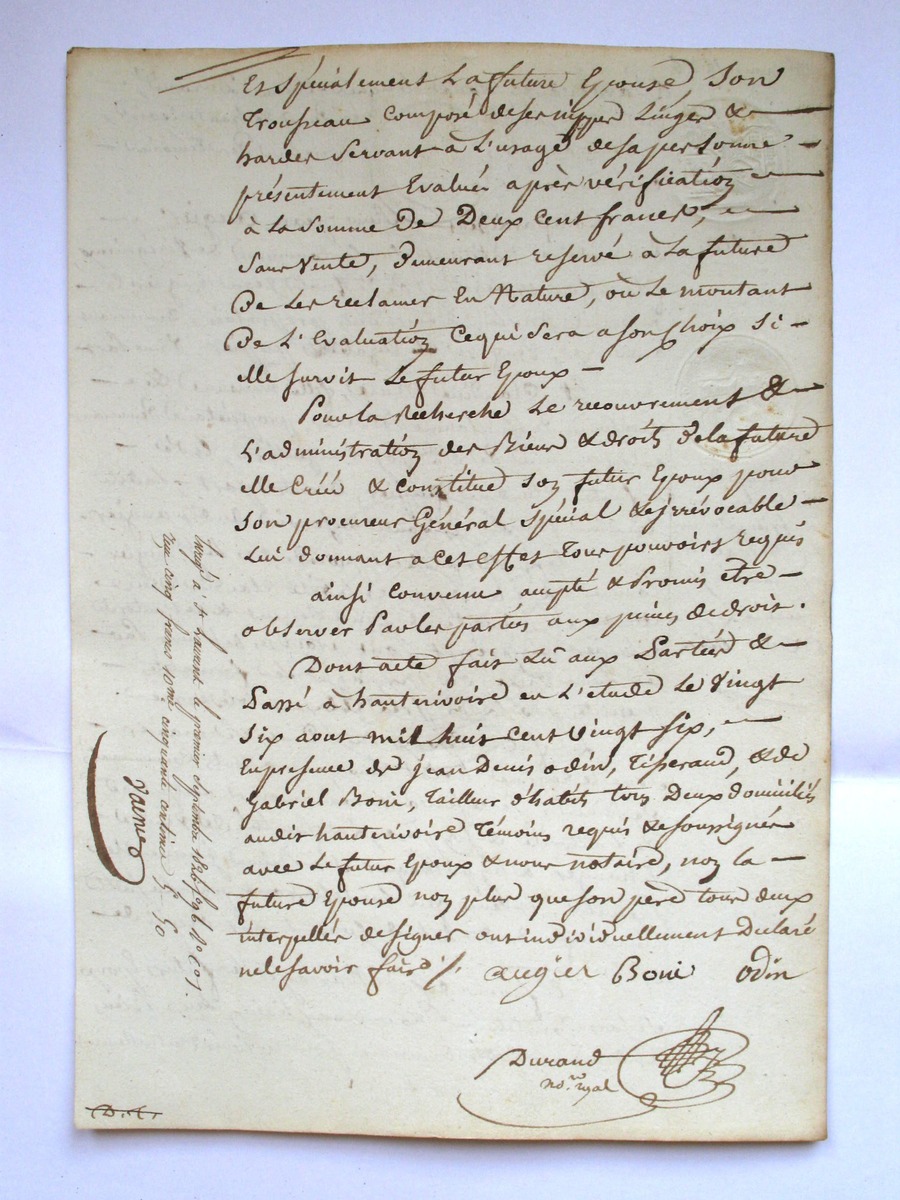 Et spécialement La future Epouse, Son
Trousseau Composé de ses nippes Linges &
hardes Servant à L'usage de sa personne
présentement Evalué après vérification
à la Somme De Deux Cent francs,
Sans Vente, demeurant reservé à La future
De Les reclamer En Nature, où Le montant
De L'Evaluation Ce qui Sera a son Choix Si
elle survit Le futur Epoux
Pour La Recherche Le recouvrement &
L'administration des Biens & droits de la future
elle Créé & Constitue son futur Epoux pour
Son procureur Général Spécial & irrévocable
Lui donnant a cet effet Tous pouvoirs requis
ainsi Convenu accepté & Promis être
observer Par les parties aux peines de droit.
Dont acte fait Lû aux Parties &
Passé à hauterivoire en L'étude Le Vingt
Six aout mil huit Cent Vingt Six,
En présence de Jean Denis odin, Tisserand, & de
Gabriel Boni, Tailleur d'habits tous Deux domiciliés
audit hauterivoire Témoins requis & soussignés
avec Le futur Epoux & nous notaire, non la
future Epouse non plus que son père tous deux
interpellés de signer ont individuellement Declaré
ne le savoir faire ./. augier Boni odin
Durand
No.re royal
Enregé à St Laurent le premier septembre 1826 fo 96 Vo
Reçu cinq francs Dixme cinquante centimes 5" 50